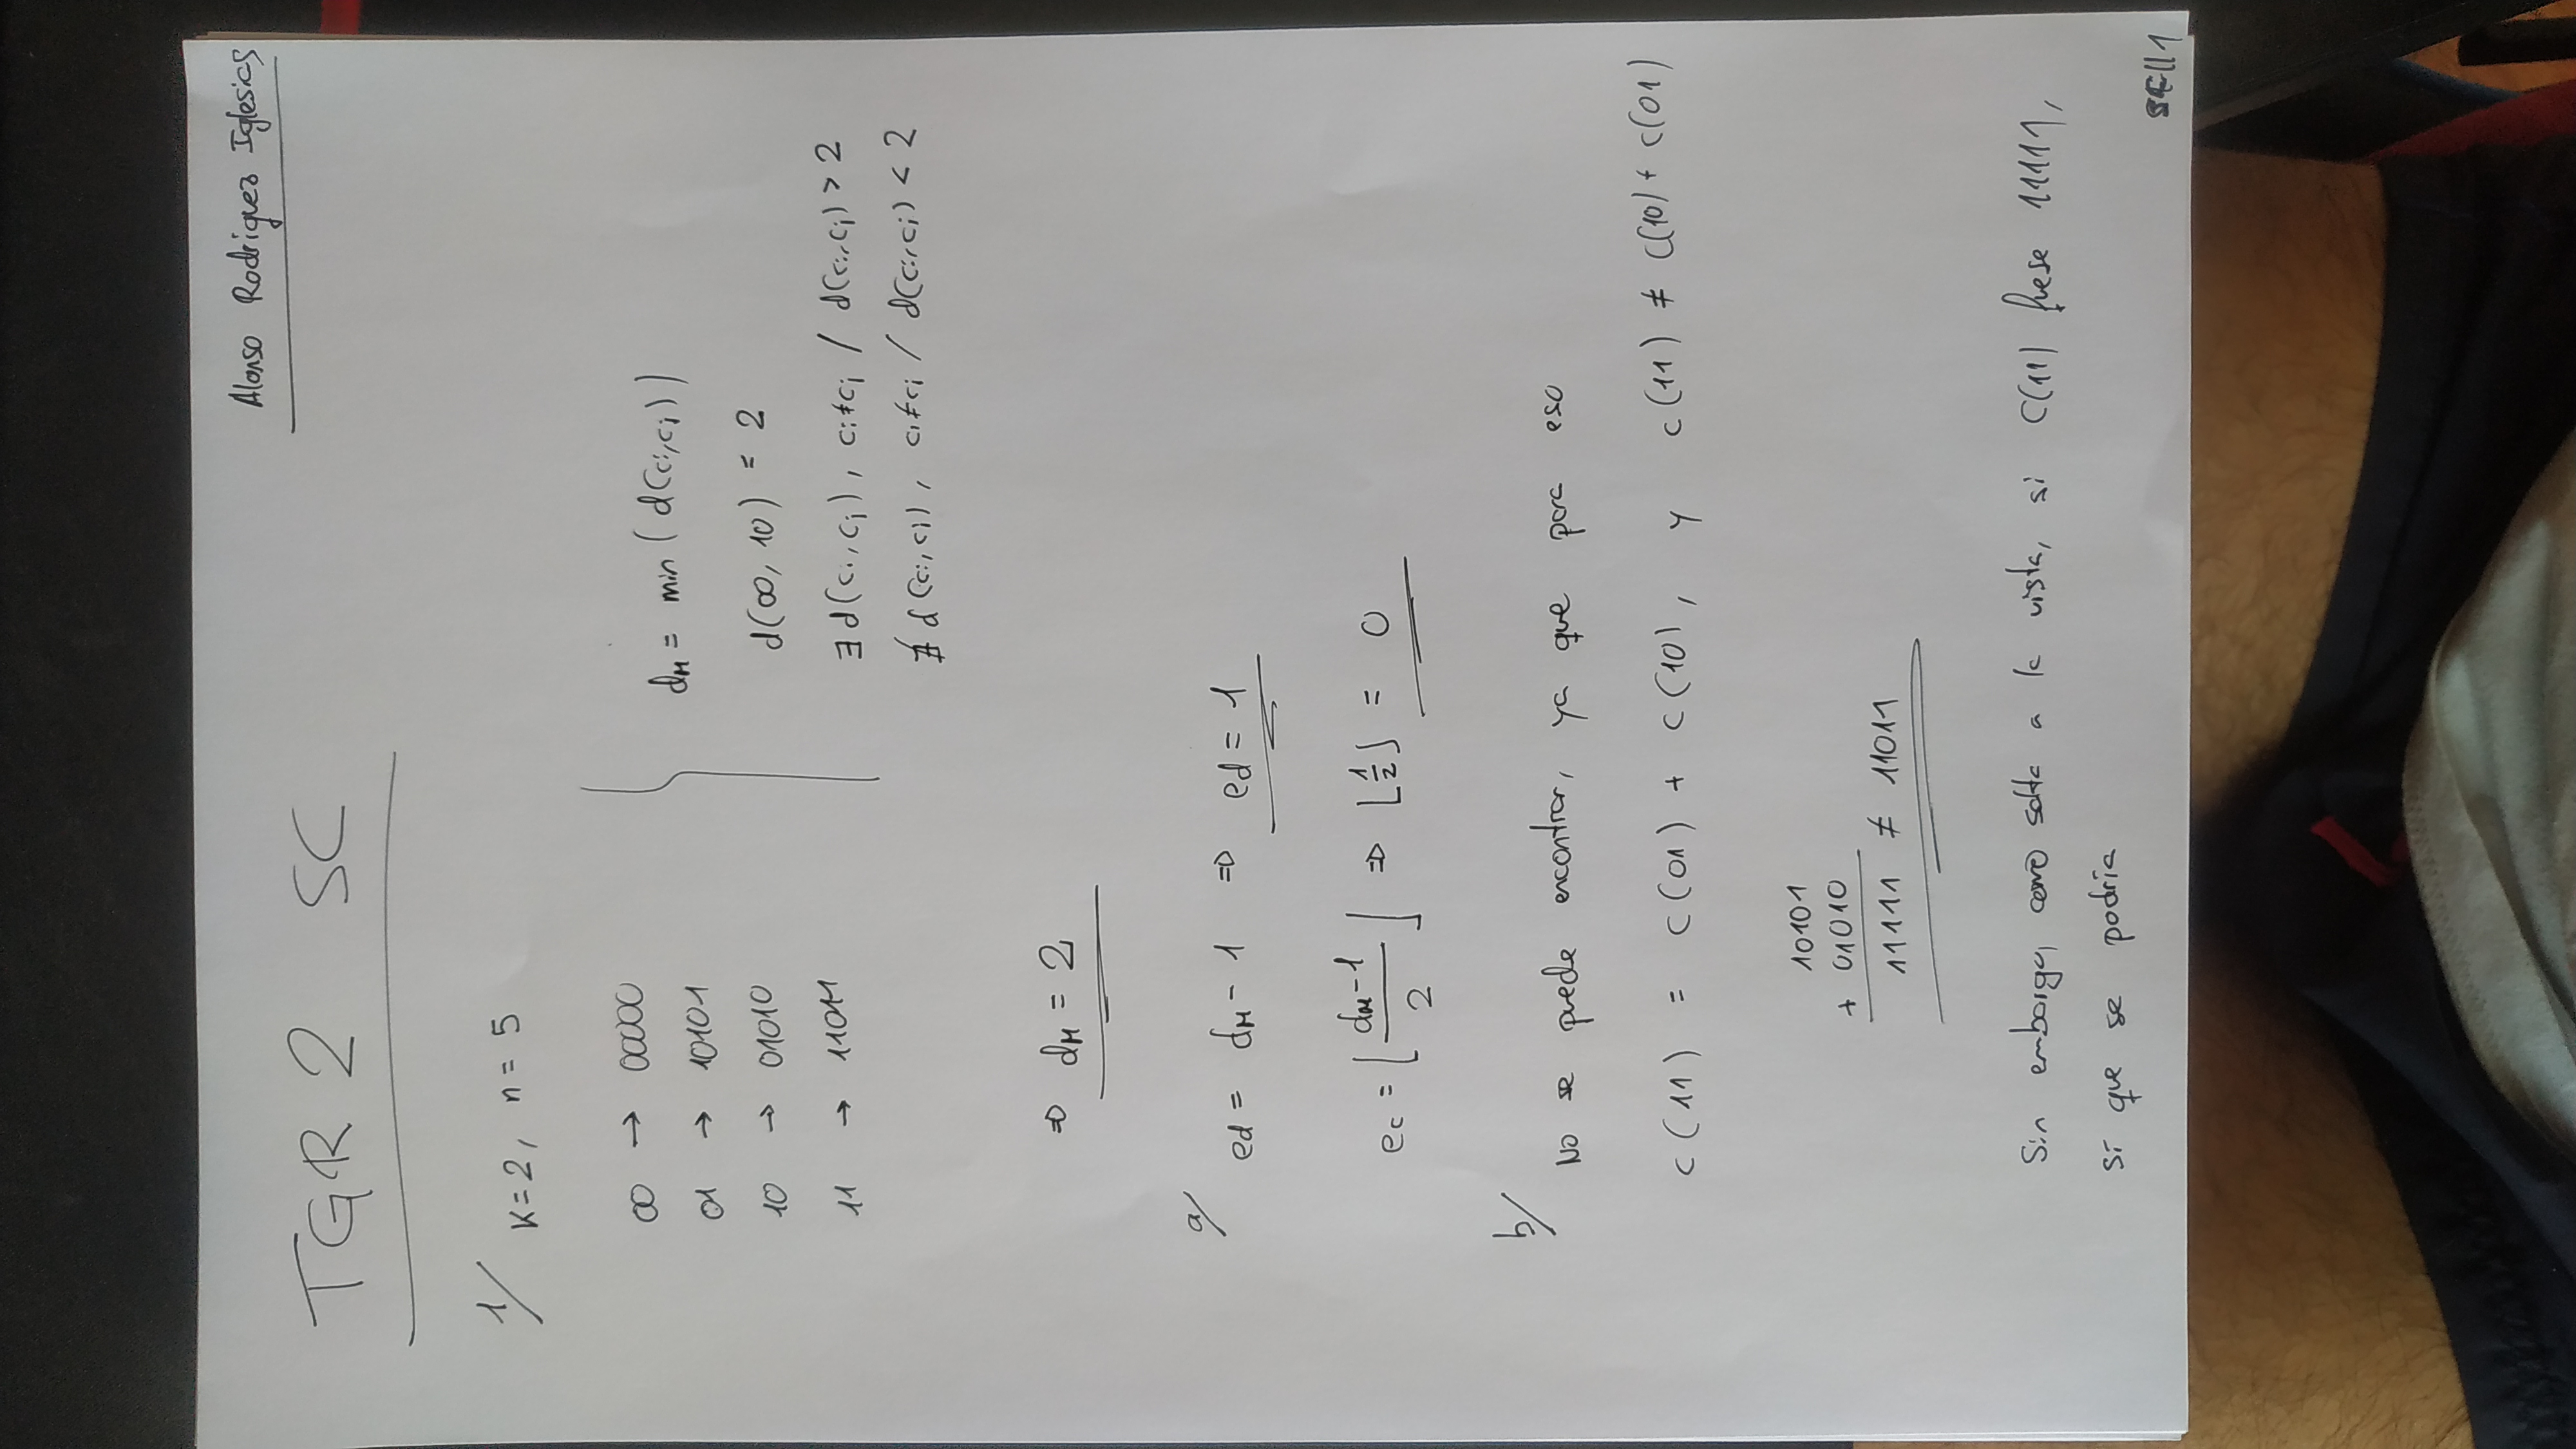 Alonso Rodriguez Iglesias
TGR 2 SC
1/ K=2, n=5
00 → 00000
01 → 10101
10 → 01010
11 → 11011
dM = min (d(ci,cj))
d(00, 10) = 2
∃ d(ci, cj), ci≠cj / d(ci,cj) > 2
∄ d(ci, cj), ci≠cj / d(ci,cj) < 2
⇒ dM = 2
a/
ed = dM - 1 ⇒ ed = 1
ec = ⌊(dM-1)/2⌋ ⇒ ⌊1/2⌋ = 0
b/
No se puede encontrar, ya que para eso
C(11) = C(01) + C(10), y C(11) ≠ C(10) + C(01)
10101
+ 01010
11111 ≠ 11011
Sin embargo, como salta a la vista, si C(11) fuese 11111,
sí que se podría